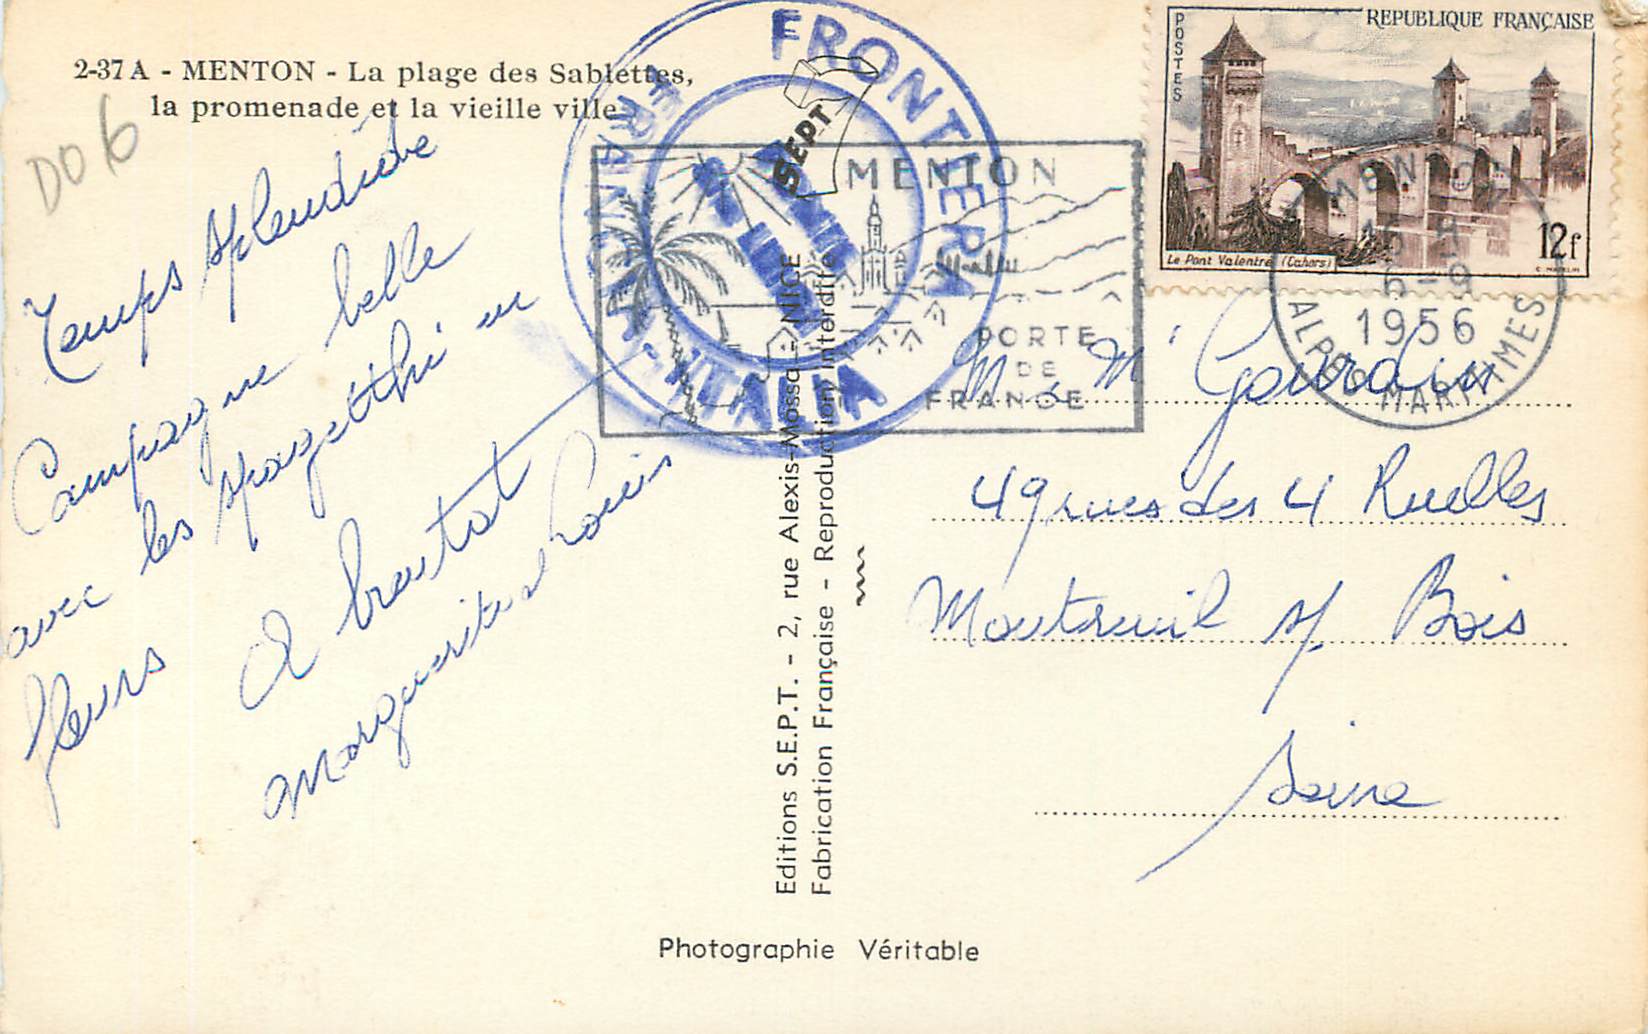 2-37 A - MENTON - La plage des Sablettes,
la promenade et la vieille ville
DO 6
Temps splendide
Campagne belle
avec les spagetthi en
fleurs
A bientot
Marguerite et Louis
FRONTIERA
FRANCIA-ITALIA
SEPT
MENTON
PORTE
DE
FRANCE
REPUBLIQUE FRANÇAISE
POSTES
Le Pont Valentré (Cahors)
12f
MENTON
15 H
6-9
1956
ALPES MARITIMES
M. & Me Gourdin
49 rues des 4 Ruelles
Montreuil s/ Bois
Seine
Editions S.E.P.T. - 2, rue Alexis-Mossa - NICE
Fabrication Française - Reproduction interdite
Photographie Véritable